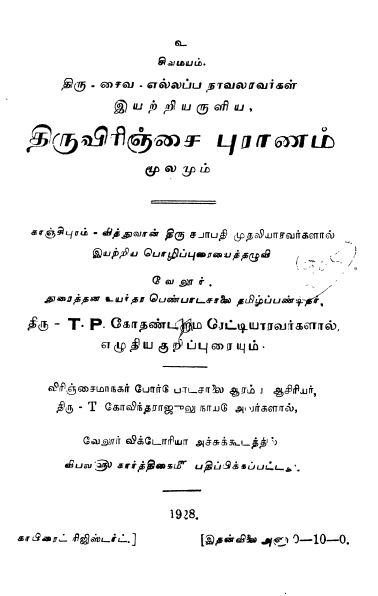 உ
சிவமயம்.
திரு - சைவ - எல்லப்ப நாவலரவர்கள்
இயற்றியருளிய,
திருவிரிஞ்சை புராணம்
மூலமும்
காஞ்சிபுரம் - வித்துவான் திரு சபாபதி முதலியாரவர்களால்
இயற்றிய பொழிப்புரையைத்தழுவி
வேலூர்,
துரைத்தன உயர்தர பெண்பாடசாலை தமிழ்ப்பண்டிதர்,
திரு - T. P. கோதண்டராம ரெட்டியாரவர்களால்,
எழுதிய குறிப்புரையும்.
விரிஞ்சைமாநகர் போர்டு பாடசாலை ஆசிரியர்,
திரு - T கோவிந்தராஜுலு நாயடு அவர்களால்,
வேலூர் விக்டோரியா அச்சுக்கூடத்தில்
விபவ கார்த்திகைமீ பதிப்பிக்கப்பட்டது.
1928.
காபிரைட் ரிஜிஸ்டர்ட்.] [இதன்விலை அணா 0—10—0.